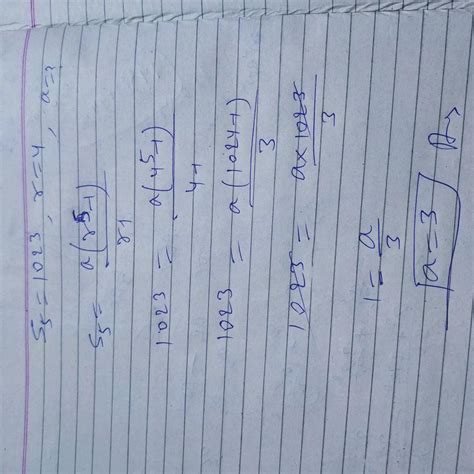 S₅ = 1023, r = 4, a = ?
S₅ = a(r⁵-1) / r-1
1023 = a(4⁵-1) / 4-1
1023 = a(1024-1) / 3
1023 = a × 1023 / 3
1 = a / 3
a = 3 Ans